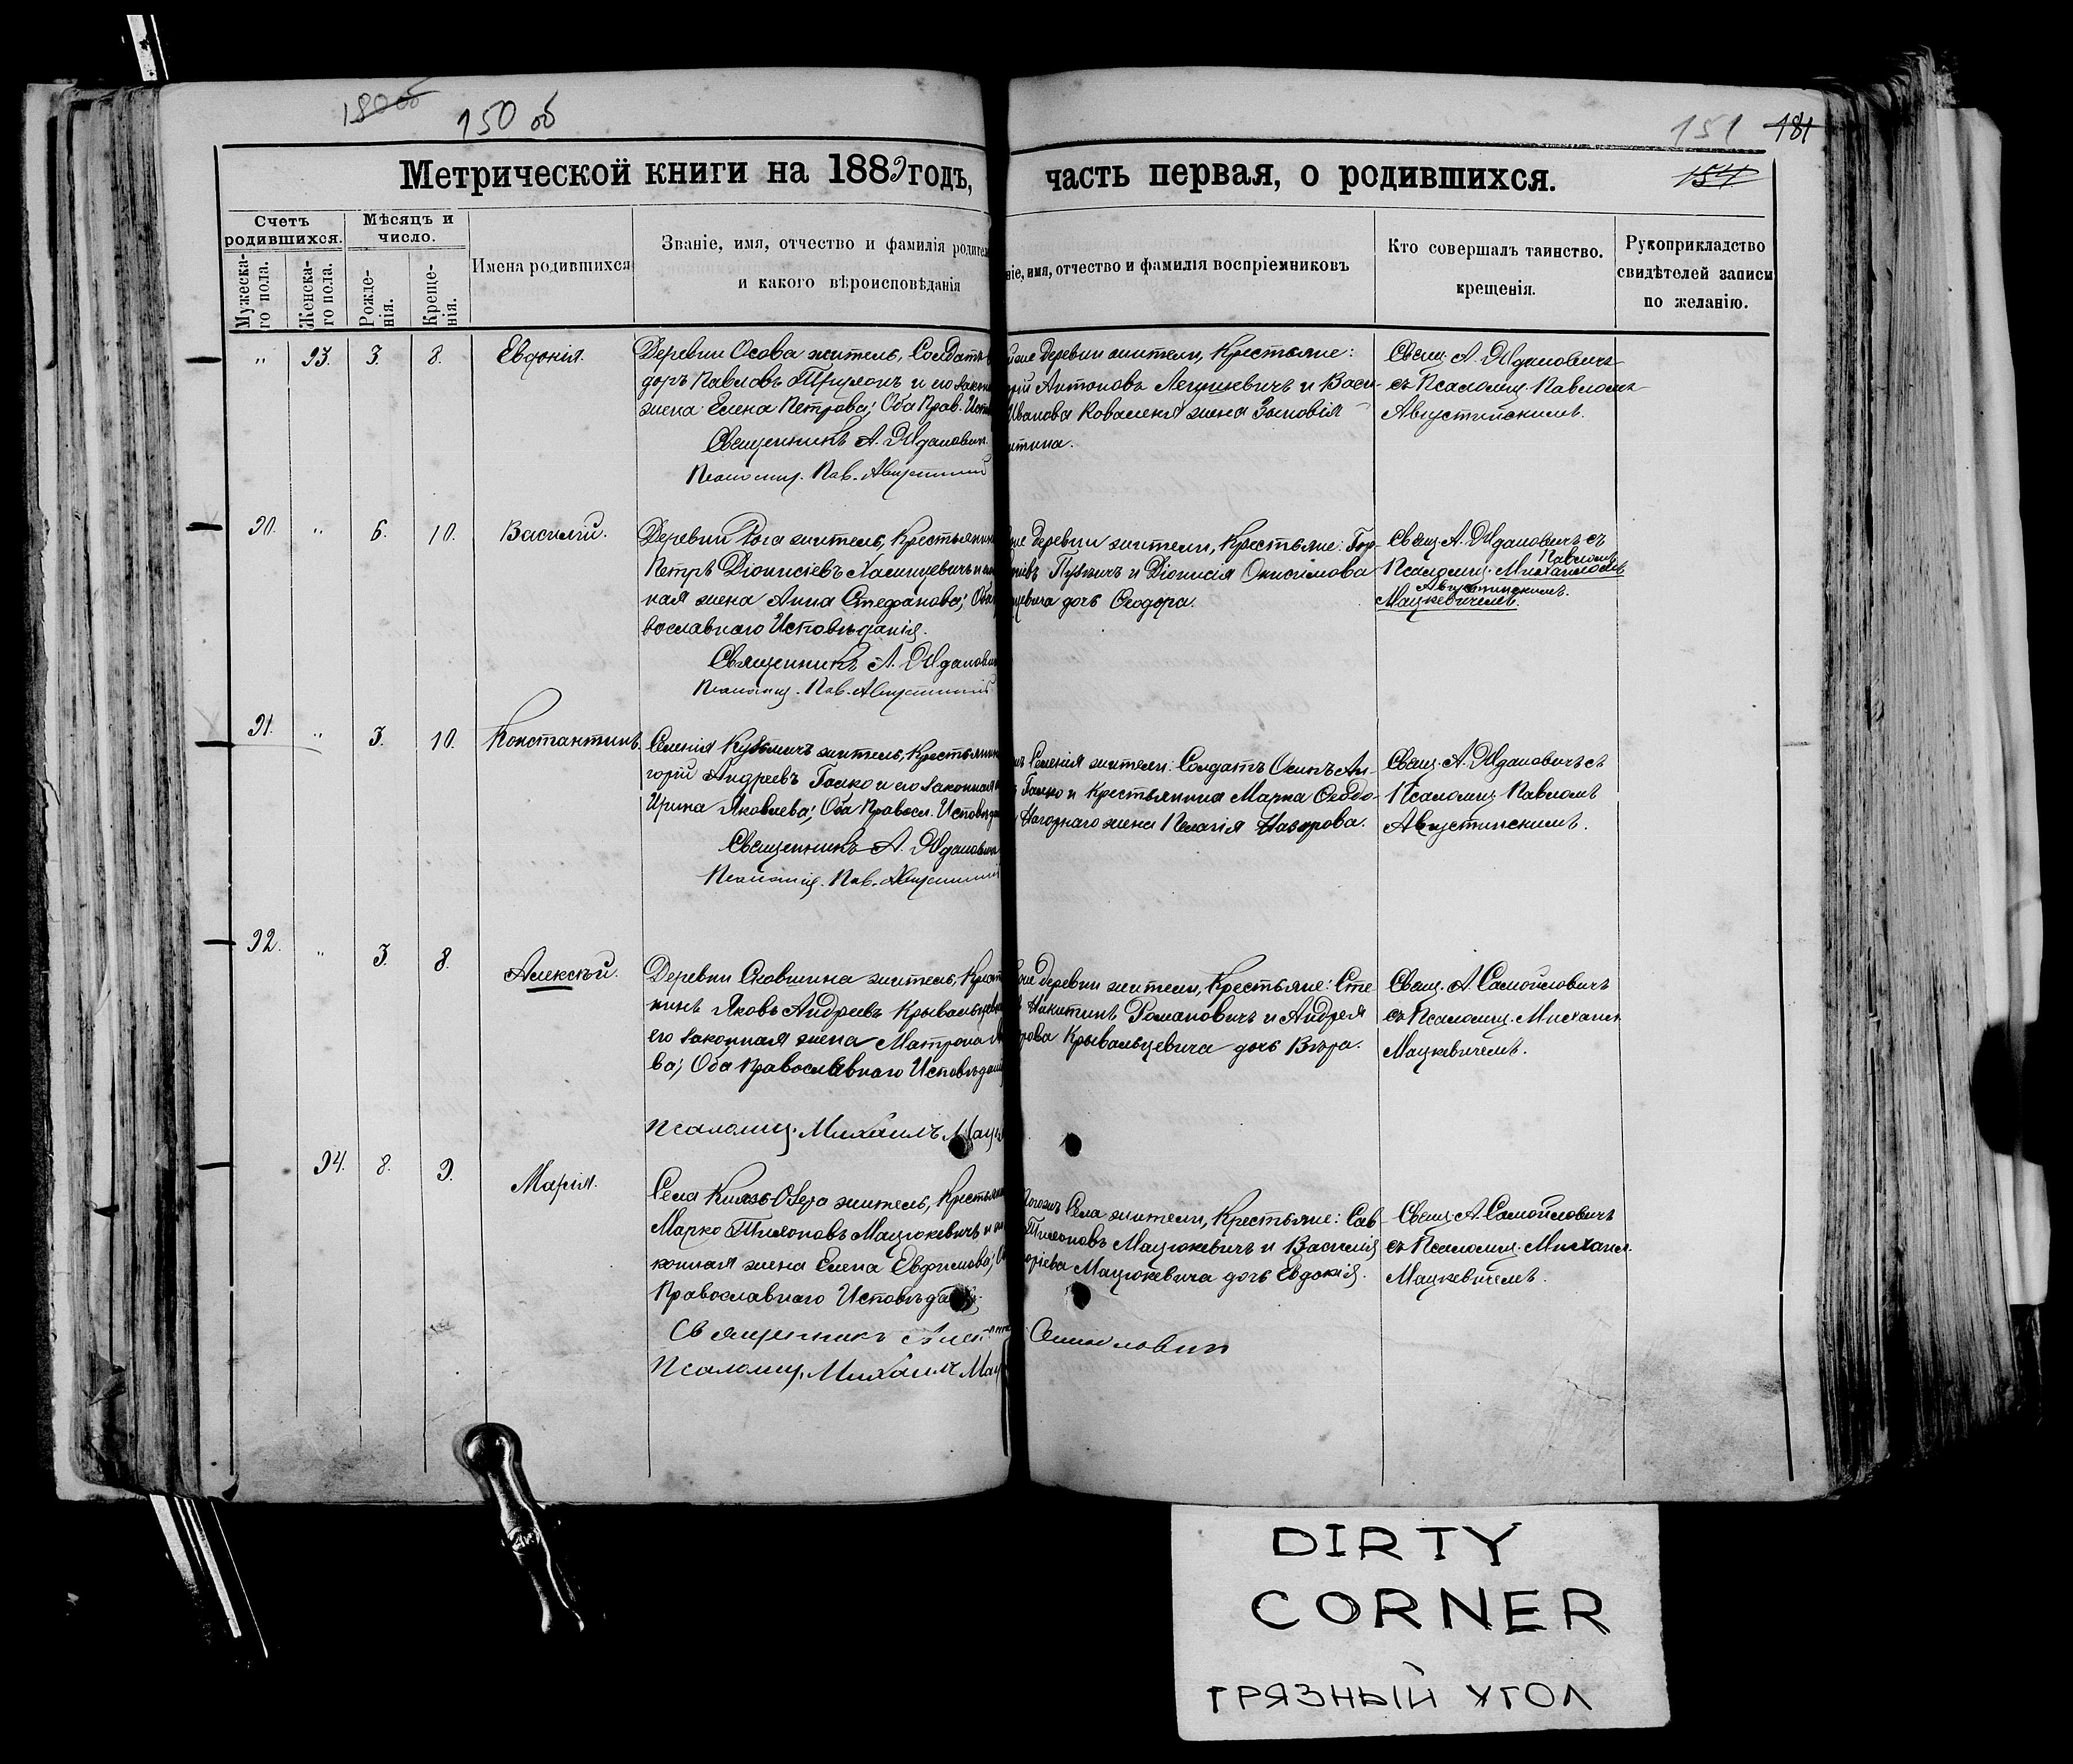 180 об
150 об
151 181
154
Метрической книги на 1889 годъ,
часть первая, о родившихся.
Счетъ родившихся.
Мѣсяцъ и число.
Мужеска-го пола.
Женска-го пола.
Рожде-нія.
Креще-нія.
Имена родившихся
Званіе, имя, отчество и фамилія родител
и какого вѣроисповѣданія
ніе, имя, отчество и фамилія воспріемниковъ
Кто совершалъ таинство.
крещенія.
Рукоприкладство
свидѣтелей записи
по желанію.
" 93. 3. 8. Евдокія.
Деревни Осова житель, Солдатъ
доръ Павловъ и его закон
жена Елена Петрова; Оба Прав. Испов
Священникъ А. Ждановичъ
Псаломщ. Пав. Августинскій
деревни жители, Крестьяне:
Антоновъ и Васи-
Иванова Коваленя жена Зиновія
итина.
Свящ. А. Ждановичъ
съ Псаломщ. Павломъ
Августинскимъ.
90. " 6. 10. Василій.
Деревни житель, Крестьянинъ
Петръ Діонисіевъ и
ная жена Анна Стефанова; Оба
вославнаго Исповѣданія.
Священникъ А. Ждановичъ
Псаломщ. Пав. Августинскій
деревни жители, Крестьяне:
и Діонисія Онисимова
цевича дочь Ѳеодора.
Свящ. А. Ждановичъ съ
Псаломщ. Михаиломъ
Павломъ
Августинскимъ.
Мацкевичемъ.
91. " 3. 10. Константинъ.
Селенія Кузьмичъ житель, Крестьянин
горій Андреевъ Гацко и его законная
Ирина Яковлева; Оба Правосл. Исповѣд
Священникъ А. Ждановичъ
Псаломщ. Пав. Августинскій
Селенія жители: Солдатъ Осипъ Ан-
Гацко и Крестьянина Марка Ѳеодо-
Нагорнаго жена Пелагія Назарова.
Свящ. А. Ждановичъ съ
Псаломщ. Павломъ
Августинскимъ.
92. " 3. 8. Алексѣй.
Деревни Сковшина житель, Крест
нинъ Яковъ Андреевъ Крывальцевич
его законная жена Матрона
ва; Оба Православнаго Исповѣдані
Псаломщ. Михаилъ Мацк
деревни жители, Крестьяне: Сте
Никитинъ Романовичъ и Андрея
рова Крывальцевича дочь Вѣра.
Свящ. А. Самойловичъ
съ Псаломщ. Михаил.
Мацкевичемъ.
94. 8. 9. Марія.
Села Князь-Озера житель, Крестьян
Марко Тихоновъ Мацюкевичъ и
конная жена Елена Евфимова;
Православнаго Исповѣда
Священникъ
Псаломщ. Михаилъ Мац
Села жители, Крестьяне: Сав-
Тихоновъ Мацюкевичъ и Василія
оріева Мацюкевича дочь Евдокія.
Самойловичъ
Свящ. А. Самойловичъ
съ Псаломщ. Михаил.
Мацкевичемъ.
DIRTY
CORNER
ГРЯЗНЫЙ УГОЛ